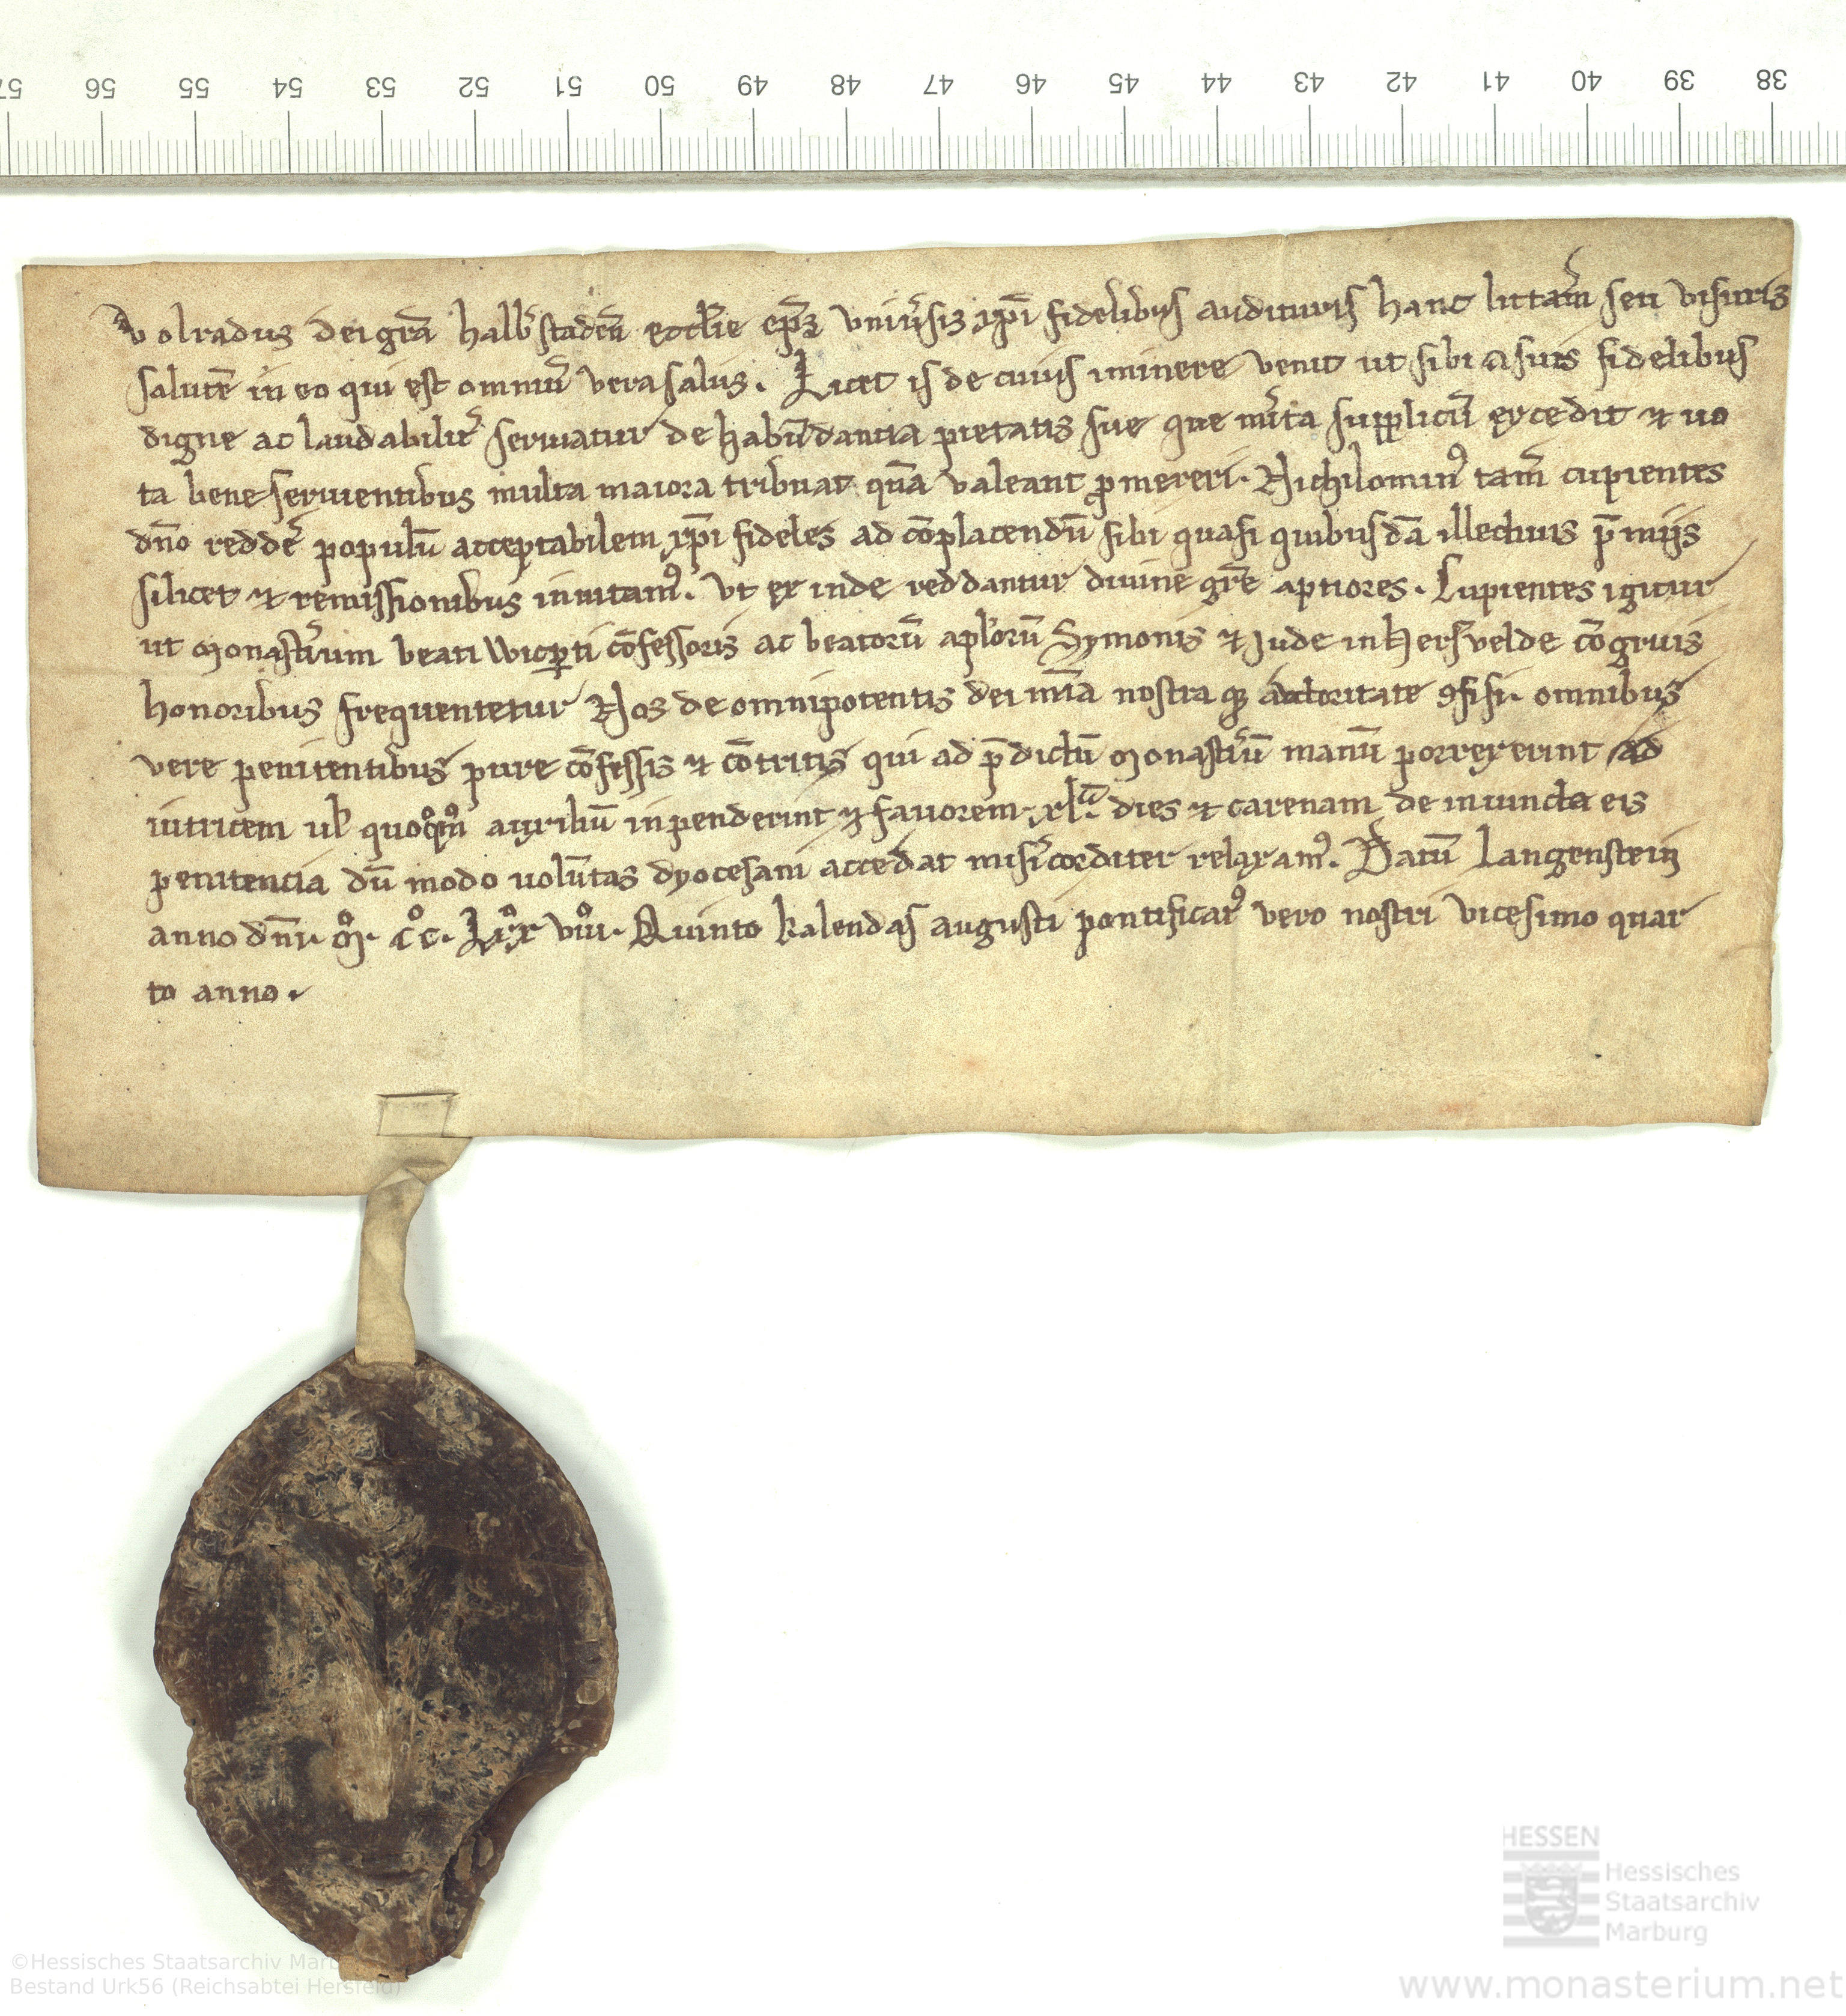 57 56 55 54 53 52 51 50 49 48 47 46 45 44 43 42 41 40 39 38
Volradus dei grā halb'staden̄ eccl'ie ep̄s vniu'sis xp̄i fidelibus audituris hanc litt'am seu visuris
salutē in eo qui est omniū vera salus. Licet is de cuius munere venit ut sibi a suis fidelibus
digne ac laudabilit' seruiatur de habūdantia pietatis sue que m'ita supplicū excedit et uo
ta bene seruientibus multa maiora tribuat quā valeant ꝓmereri. Nichilomin⁹ tam̄ cupientes
dn̄o redde' populū acceptabilem xp̄i fideles ad cōplacendū sibi quasi quibusdā illectiuis p̄mijs
silicet et remissionibus inuitam⁹. Vt ex inde reddantur diuine gr̄e aptiores. Cupientes igitur
ut monast'ium beati Wicꝑti cōfessoris ac beatorū apl'orū Symonis et Jude in Hersvelde cōgruis
honoribus frequentetur Nos de omnipotentis dei mīa nostra qꝫ auctoritate ꝯfisi. omnibus
vere penitentibus pure cōfessis et cōtritis qui ad p̄dictū monast'iū manū porrexerint ad
iutricem ul' quoqͦmͦ auxiliū inpenderint et fauorem. xl.ᵃ dies et carenam de iniuncta eis
penitencia dū modo uolūtas dyocesani accedat mis'icorditer relaxam⁹. Datū Langenstein
anno dn̄i. mͦ. cͦc. Lxͦx viiiͦ. Quinto kalendas augusti pontificat⁹ vero nostri vicesimo quar
to anno.
HESSEN
Hessisches
Staatsarchiv
Marburg
©Hessisches Staatsarchiv Marb
Bestand Urk56 (Reichsabtei Hersfeld)
www.monasterium.net